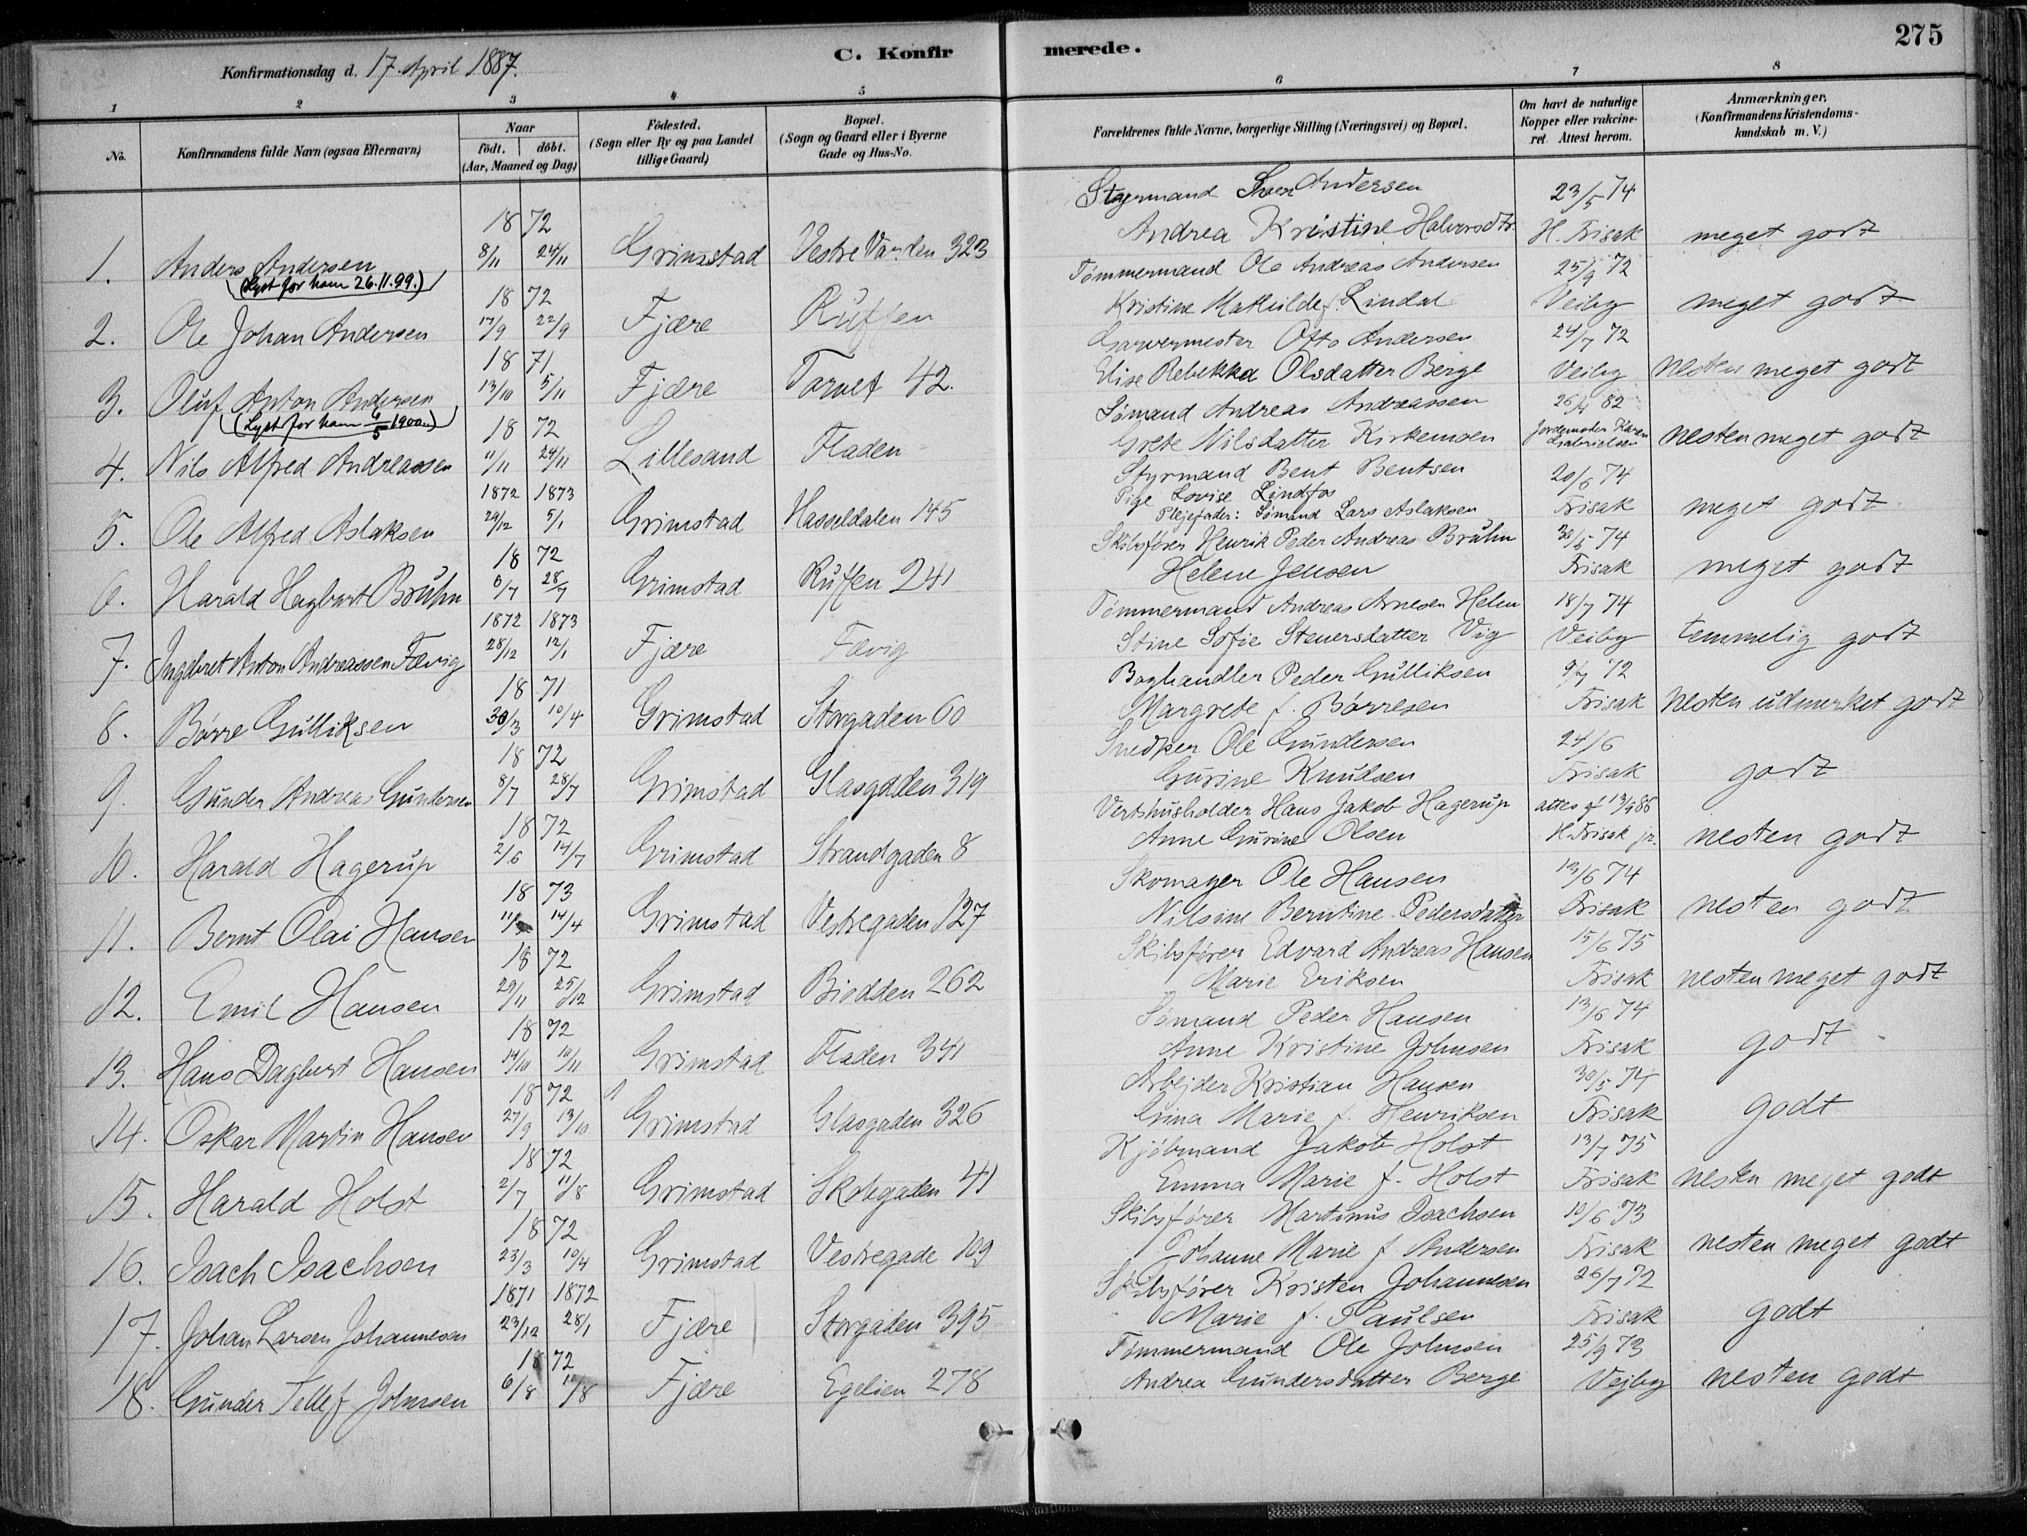 275
Konfirmationsdag d. 17. April 1887.
C. Konfirmerede.
1 2 3 4 5 6 7 8
No.
Konfirmandens fulde Navn (ogsaa Efternavn)
Naar
födt. döbt.
(Aar, Maaned og Dag)
Födested.
(Sogn eller By og paa Landet
tillige Gaard)
Bopæl.
(Sogn og Gaard eller i Byerne
Gade og Hus-No.
Forældrenes fulde Navne, borgerlige Stilling (Næringsvei) og Bopæl.
Om havt de naturlige
Kopper eller vakcine-
ret. Attest herom.
Anmærkninger.
(Konfirmandens Kristendoms-
kundskab m. V.)
18 72 Styrmand Andersen 23/5 74
1. Anders Andersen 8/11 24/11 Grimstad Vestre Varden 323 Andrea Kristine Halvorsdtr. H. Frisak meget godt
(Lyst for ham 26.11.99.)
18 72 Tømmermand Ole Andreas Andersen 25/9 72
2. Ole Johan Andersen 17/9 22/9 Fjære Ruffen Kristine Mathilde f. Lindal Veiby meget godt
18 71 Garvermester Otto Andersen 24/7 72
3. Oluf Anton Andersen 13/10 5/11 Fjære Torvet 42. Elise Rebekka Olsdatter Berge Veiby nesten meget godt
(Lyst for ham 6/5 1900.)
18 72 Sømand Andreas Andreassen 26/4 82
4. Nils Alfred Andreassen 11/11 24/11 Lillesand Fladen Grete Nilsdatter Kirkemoen Jordemoder Gabrielsen nesten meget godt
1872 1873 Styrmand Bent Bentsen 20/6 74
5. Ole Alfred Aslaksen 29/12 5/1 Grimstad Hasseldalen 145 Pige Lovise Lindfos Frisak meget godt
Plejefader: Sømand Lars Aslaksen
18 72 Skibsfører Henrik Peder Andreas Bruhn 30/5 74
6. Harald Hagbart Bruhn 6/7 28/7 Grimstad Ruffen 241 Helene Jensen Frisak meget godt
1872 1873 Tømmermand Andreas Arnesen Helen 18/7 74
7. Ingebret Anton Andreassen Fævig 28/12 12/1 Fjære Fævig Stine Sofie Stenersdatter Vig Veiby temmelig godt
18 71 Boghandler Peder Gulliksen 9/7 72
8. Børre Gulliksen 30/3 10/4 Grimstad Storgaden 60 Margrete f. Børresen Frisak nesten udmerket godt
18 72 Snedker Ole Gundersen 24/6
9. Gunder Andreas Gundersen 8/7 28/7 Grimstad Glasgaden 319 Gurine Knudsen Frisak godt
18 72 Vertshusholder Hans Jakob Hagerup attes af 13/9 86
10. Harald Hagerup 2/6 14/7 Grimstad Strandgaden 8 Anne Gurine Olsen H. Frisak jr. nesten godt
18 73 Skomager Ole Hansen 13/6 74
11. Bernt Olai Hansen 14/4 Grimstad Vestregaden 127 Nilsine Berntine Pedersdatter Frisak nesten godt
18 72 Skibsfører Edvard Andreas Hansen 15/6 75
12. Emil Hansen 29/11 25/12 Grimstad Biodden 262 Marie Eriksen Frisak nesten meget godt
18 72 Sømand Peder Hansen 13/6 74
13. Hans Dagbert Hansen 14/10 10/11 Grimstad Fladen 341 Anne Kristine Johnsen Frisak godt
18 72 Arbejder Kristian Hansen 30/5 74
14. Oskar Martin Hansen 27/9 13/10 Grimstad Glasgaden 326 Gina Marie f. Henriksen Frisak godt
18 72 Kjøbmand Jakob Holst 13/7 75
15. Harald Holst 2/7 11/8 Grimstad Skolegaden 41 Emma Marie f. Holst Frisak nesten meget godt
18 72 Skibsfører Martinus Isachsen 10/6 73
16. Isach Isachsen 23/3 10/4 Grimstad Vestregade 109 Johanne Marie f. Andersen Frisak nesten meget godt
1871 1872 Skibsfører Kristen Johannesen 26/7 72
17. Johan Larsen Johannesen 23/12 28/1 Fjære Storgaden 395 Marie f. Paulsen Frisak godt
18 72 Tømmermand Ole Johnsen 25/9 73
18. Gunder Tellef Johnsen 6/8 11/8 Fjære Egelien 278 Andrea Gundersdatter Berge Vejby nesten godt